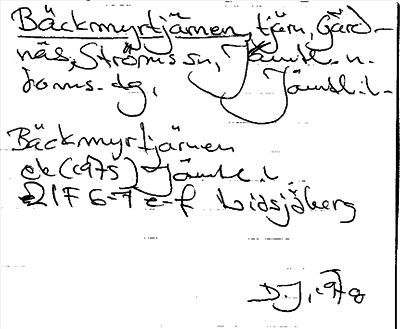 Bäckmyrtjärnen, tjärn, Gärd-
näs, Ströms sn, Jämtl. n.
doms. dg, Jämtl. l.
Bäckmyrtjärnen
ek (1975) Jämtl. l.
21F 6-7 e-f Lidsjöberg
D.J. 1978